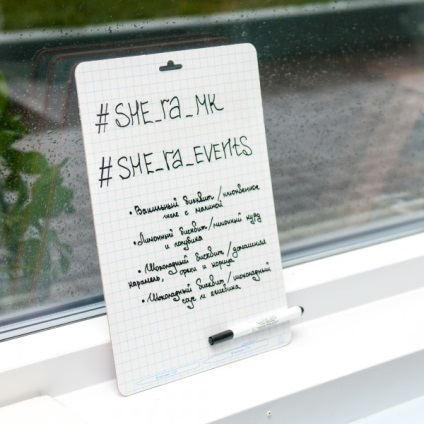 #SHE_ra_MK
#SHE_ra_EVENTS
• Ванильный бисквит/
с малиной
• Лимонный бисквит/лимонный курд
и голубика
• Шоколадный бисквит/домашняя
карамель, орехи и корица
• Шоколадный бисквит/шоколадный
мусс и ежевика